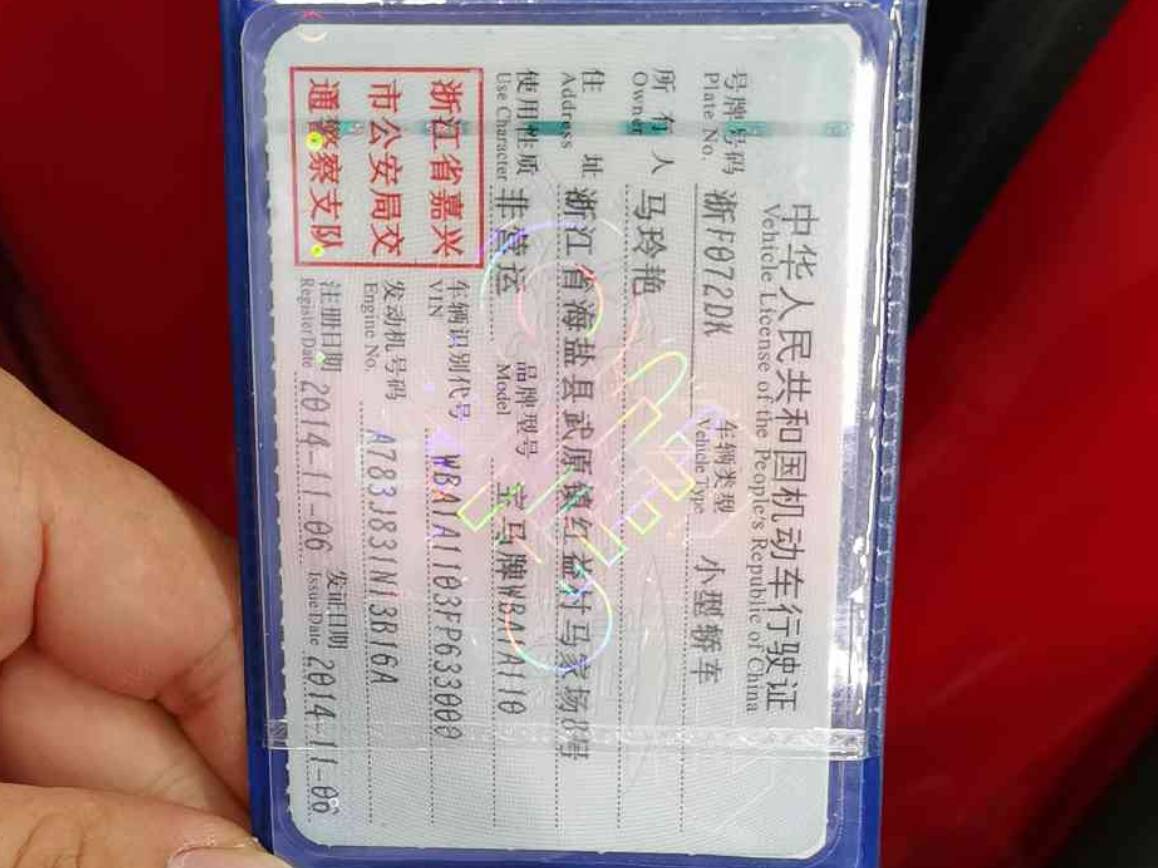 中华人民共和国机动车行驶证
Vehicle License of the People's Republic of China
号牌号码 浙F072DK 车辆类型 小型轿车
Plate No. Vehicle Type
所有人 马玲艳
Owner
住址 浙江省海盐县武原镇红益村马家场8号
Address
使用性质 非营运 品牌型号 宝马牌WBA1A110
Use Character Model
浙江省嘉兴
市公安局交
通警察支队
车辆识别代号 WBA1A1103FP633000
VIN
发动机号码 A783J831N13B16A
Engine No.
注册日期 2014-11-06 发证日期 2014-11-06
Register Date Issue Date